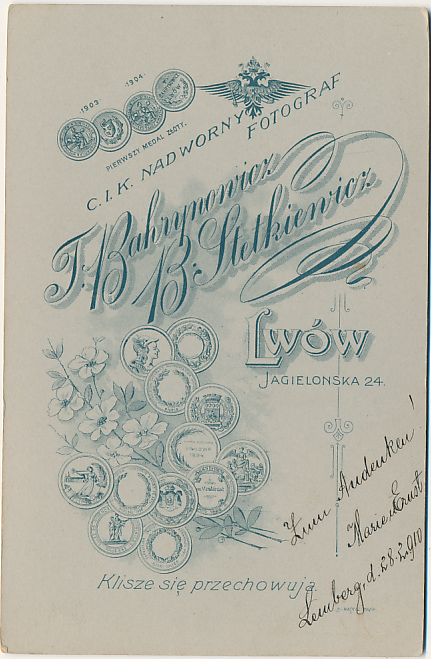 ·1903·
·1904·
PIERWSZY MEDAL ZŁOTY.
C. I. K. NADWORNY
FOTOGRAF
T. Bahrynowicz
B. Stetkiewicz
LWÓW
JAGIELONSKA 24.
Zum Andenken!
Marie Ernst
Lemberg, d. 28.2.910
Klisze się przechowują.